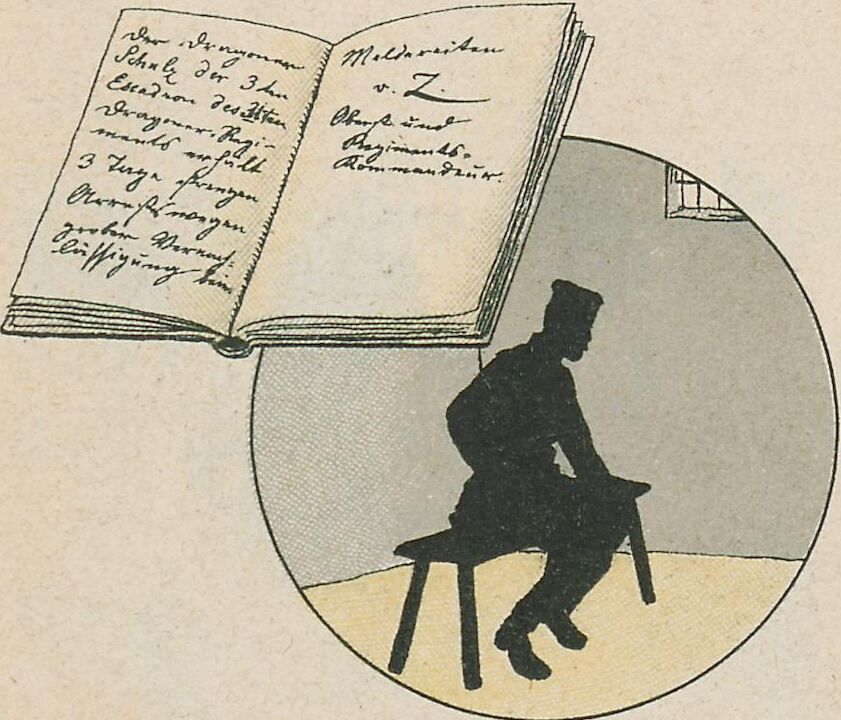 Der Dragoner
Schulz der 3ten
Escadron des 34ten
Dragoner-Regi-
ments erhält
3 Tage strengen
Arrest wegen
grober Vernach-
lässigung beim
Meldereiten
v. Z.
Oberst und
Regiments-
Kommandeur.